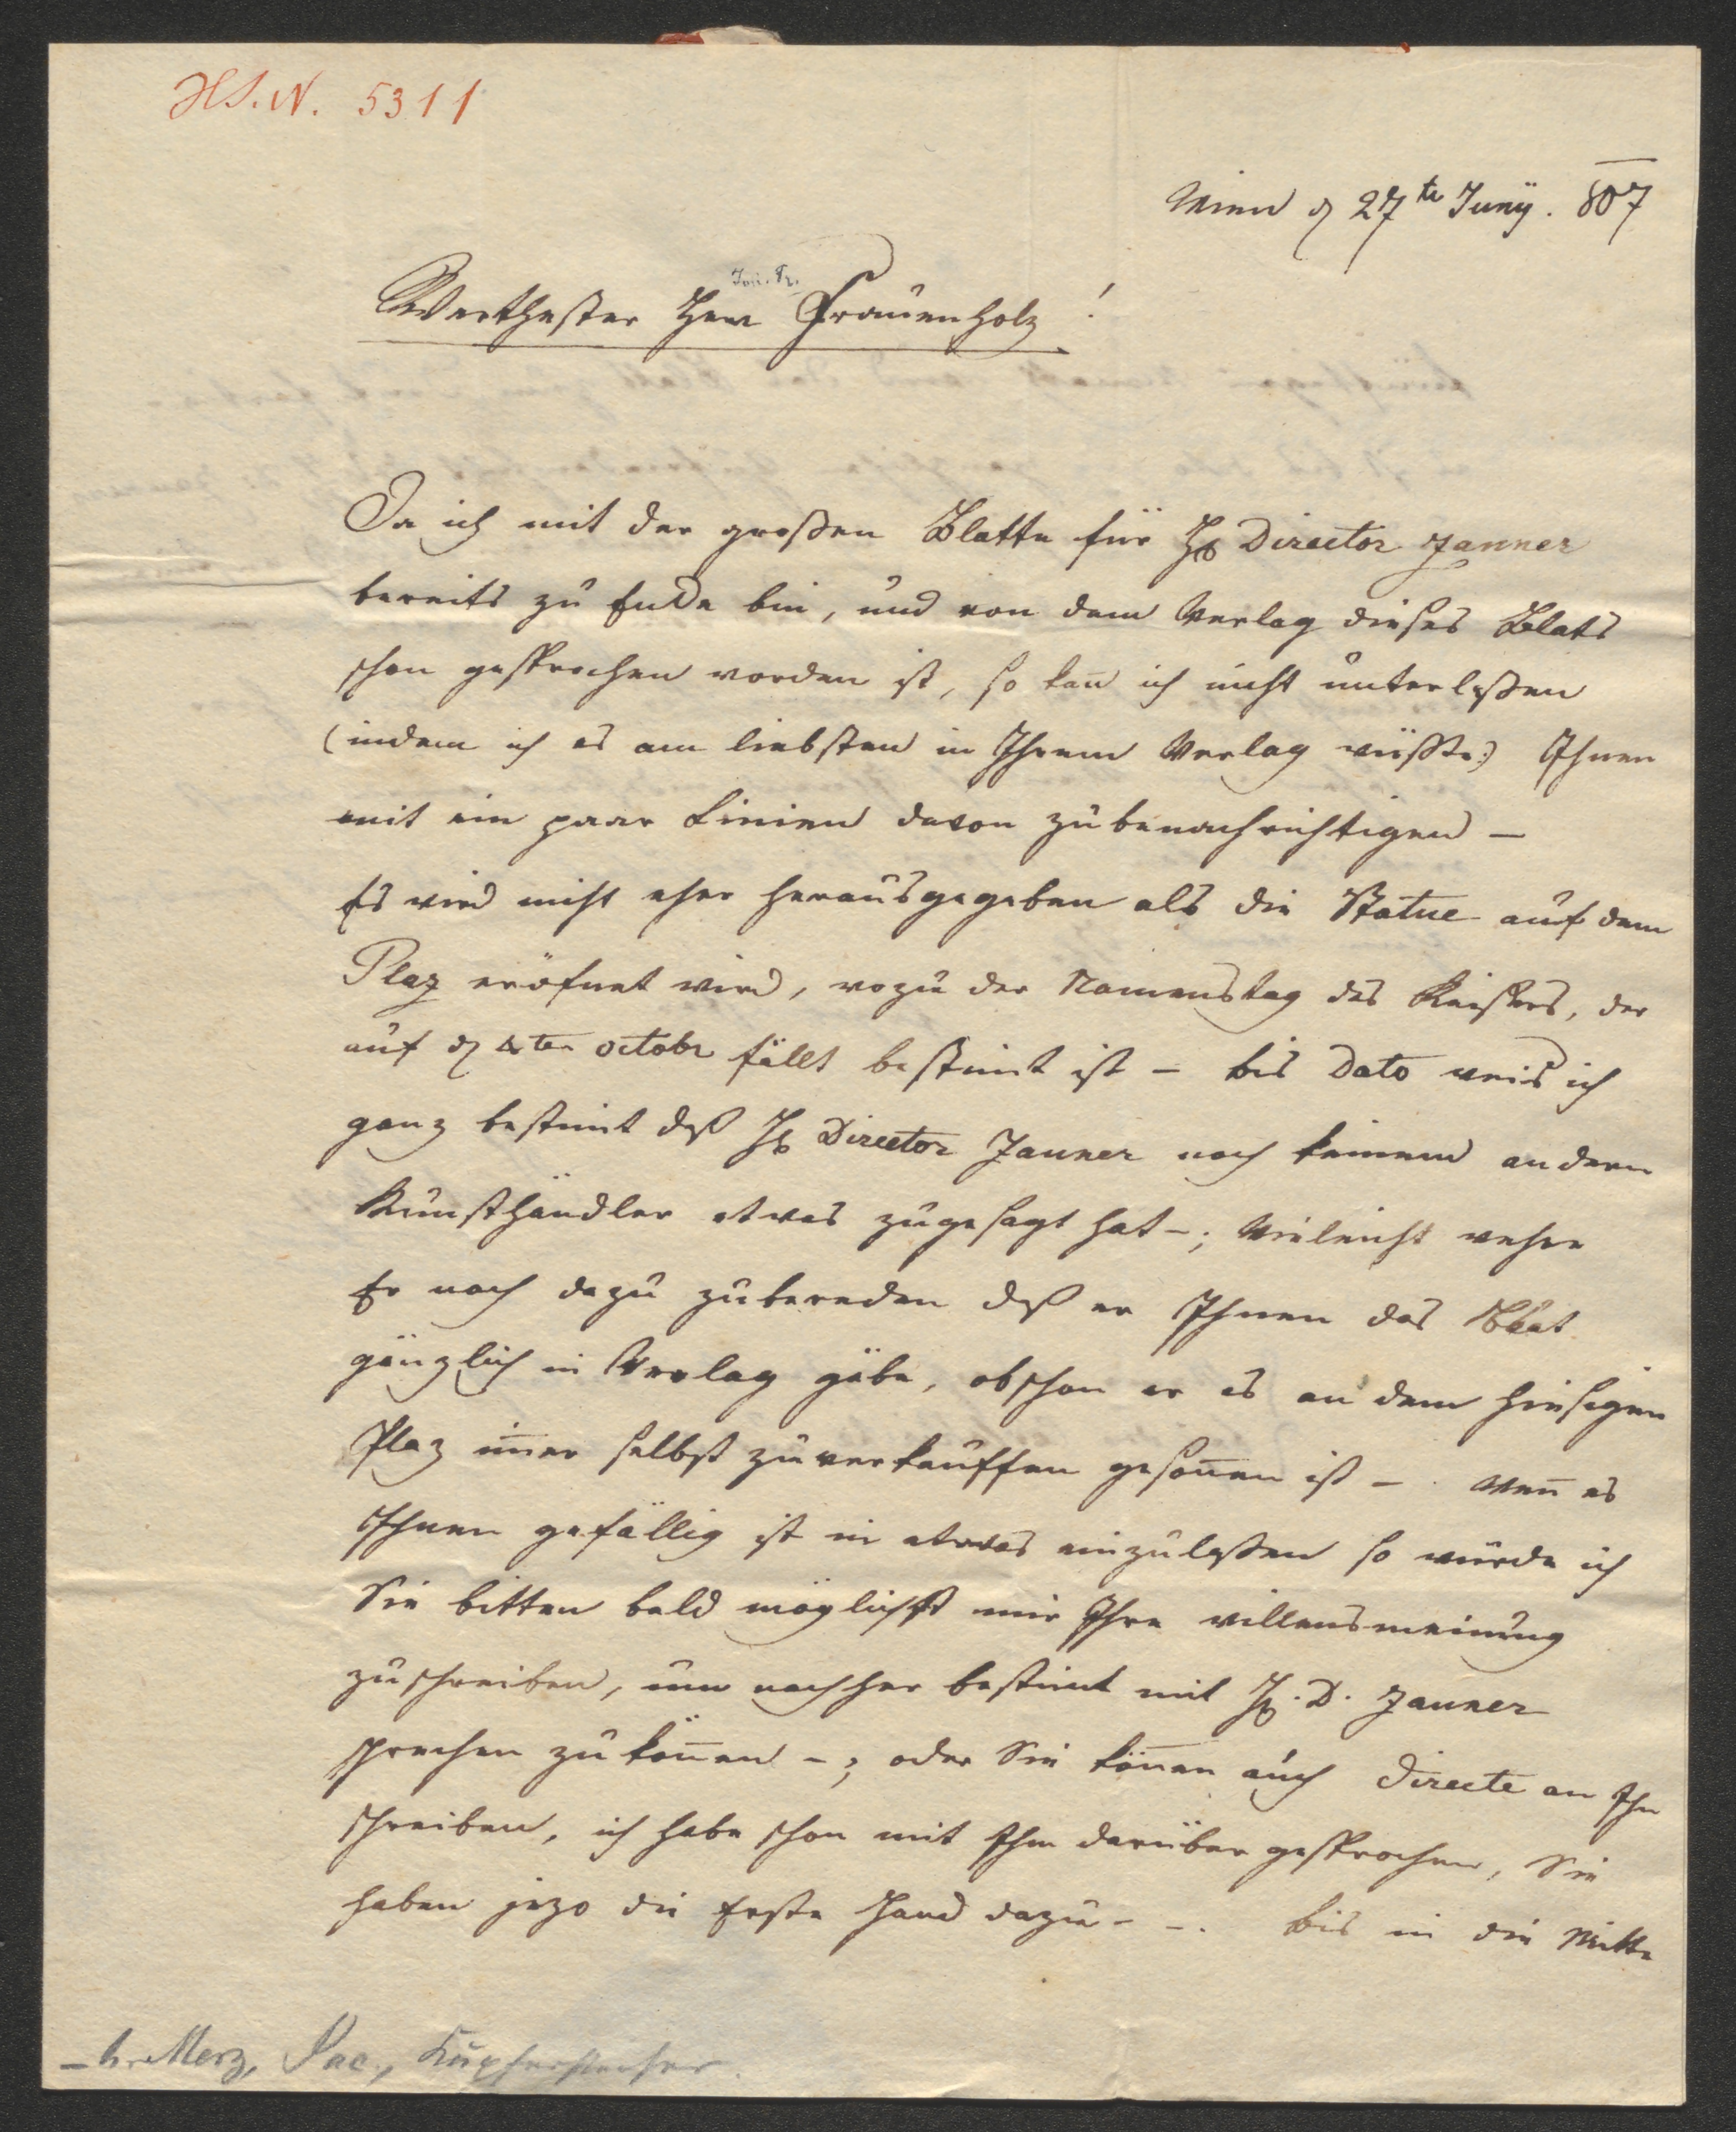 HS. N. 5311
Wien d 27te Juny. 807
Joh. Fr.
Werthester Herr Frauenholz!
Da ich mit der großen Blatte für H Director Zanner
bereits zu Ende bin, und von dem Verlag dieses Blats
schon gesprochen worden ist, so kan̄ ich nicht unterlaßen
(indem ich es am liebsten in Ihrem Verlag wüßte) Ihnen
mit ein paar Linien davon zubenachrichtigen –
Es wird nicht eher herausgegeben als die Statue auf dem
Plaz eröfnet wird, wozu der Namenstag des Kaisers, der
auf d 4ten octobr fällt bestim̄t ist – bis Dato weis ich
ganz bestim̄t daß H Director Zauner noch keinem andern
Kunsthändler etwas zugesagt hat –; Vieleicht wehre
Er noch dazu zubereden daß er Ihnen das Blat
gänzlich in Verlag gäbe, obschon er es an dem hiesigen
Plaz im̄er selbst zuverkauffen geson̄en ist – . Wen̄ es
Ihnen gefällig ist in etwas einzulaßen so würde ich
Sie bitten bald möglichst mir Ihre willensmeinung
zuschreiben, um nachher bestim̄t mit H. D. Zauner
sprechen zu kön̄en –; oder Sie kön̄en auch directe an Ihn
schreiben, ich habe schon mit Ihm darüber gesprochen, Sie
haben jezo die Erste Hand dazu – –. bis in die Mitte
Merz, Jac., Kupferstecher.